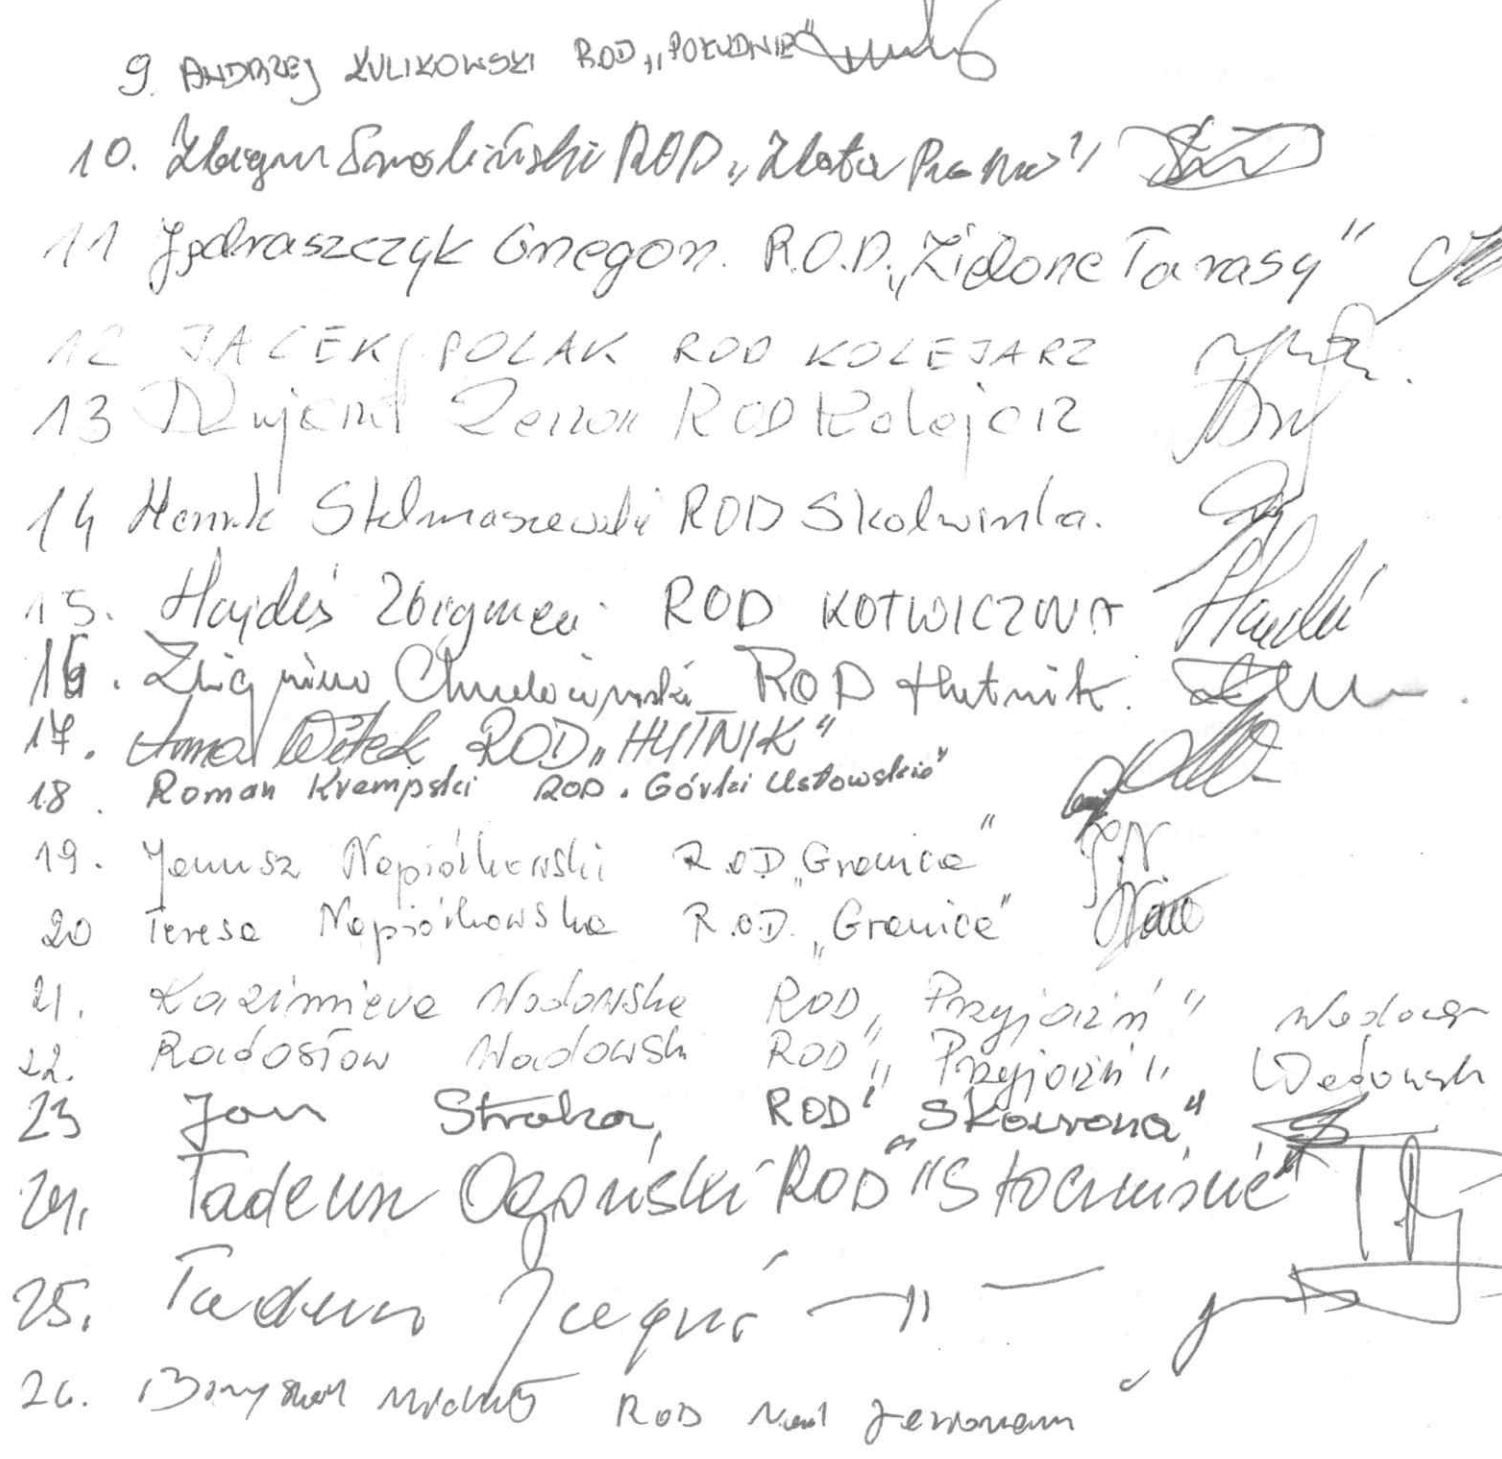 9. ANDRZEJ KULIKOWSKI ROD „POŁUDNIE"
10. Smoliński ROD „Złota"
11 Jędraszczyk Grzegorz. R.O.D. „Zielone Tarasy"
12 JACEK POLAK ROD KOLEJARZ
13 Zenon ROD Kolejarz
14 Henryk Stelmaszewski ROD Skolwinka.
15. Hajduś Zbigniew ROD KOTWICZNA
16. Zbigniew ROD Hutnik.
17. Anna Witek ROD „HUTNIK"
18. Roman Krempski ROD. Górki Ustowskie"
19. Janusz Napiórkowski R.O.D „Granica"
20 Teresa Napiórkowska R.O.D. „Granica"
21. Kazimiera Wadowska ROD „Przyjaźń"
22. Radosław Wadowski ROD „Przyjaźń"
23 Jan Straka, ROD "Skowrona"
24. Tadeusz ROD "Stoczniowiec"
25. Tadeusz — " —
26. ROD Nad